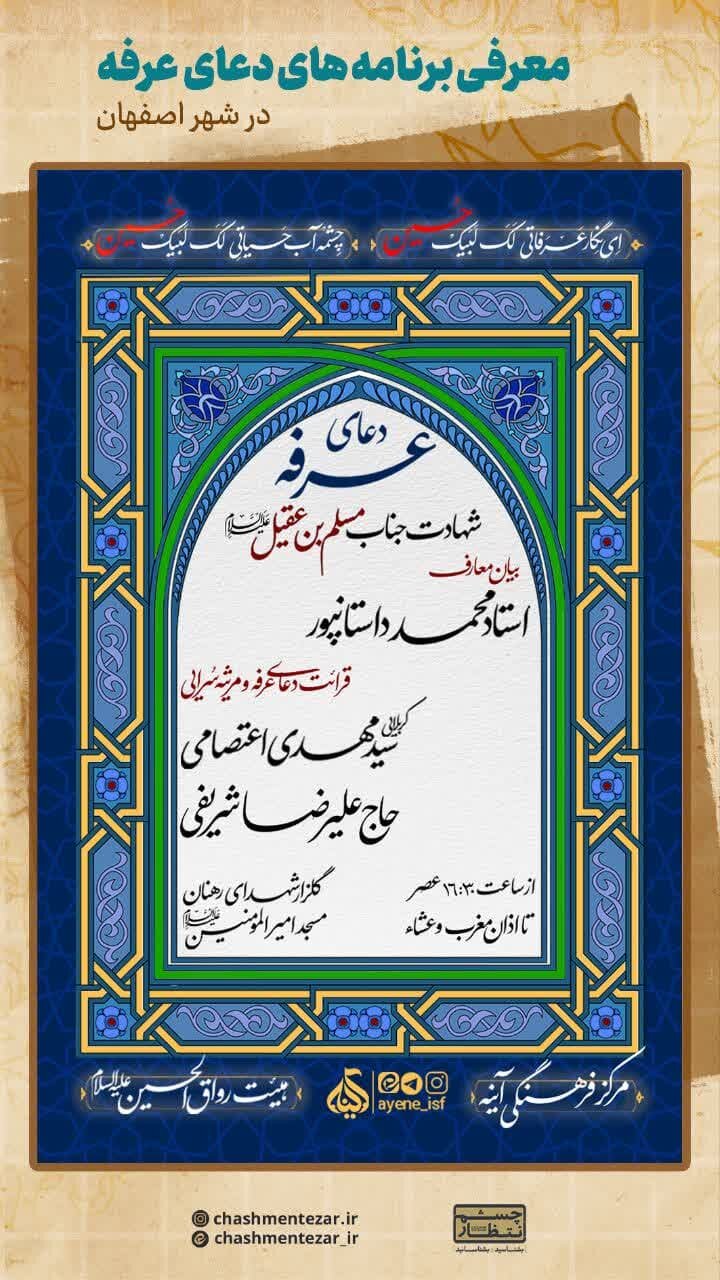 معرفی برنامه های دعای عرفه
در شهر اصفهان
ای نگار عرفاتی لک لبیک حسین
چشمه آب حیاتی لک لبیک حسین
دعای
عرفه
شهادت جناب مسلم بن عقیل علیه‌السلام
بیان معارف
استاد محمد داستانپور
قرائت دعای عرفه و مرثیه سرایی
کربلایی سید مهدی اعتصامی
حاج علیرضا شریفی
از ساعت ۱۶:۳۰ عصر
تا اذان مغرب و عشاء
گلزار شهدای رهنان
مسجد امیرالمومنین علیه‌السلام
مرکز فرهنگی آینه
ayene_isf
هیئت رواق الحسین علیه‌السلام
chashmentezar.ir
chashmentezar_ir
چشم انتظار
بشناسید . بشناسانید